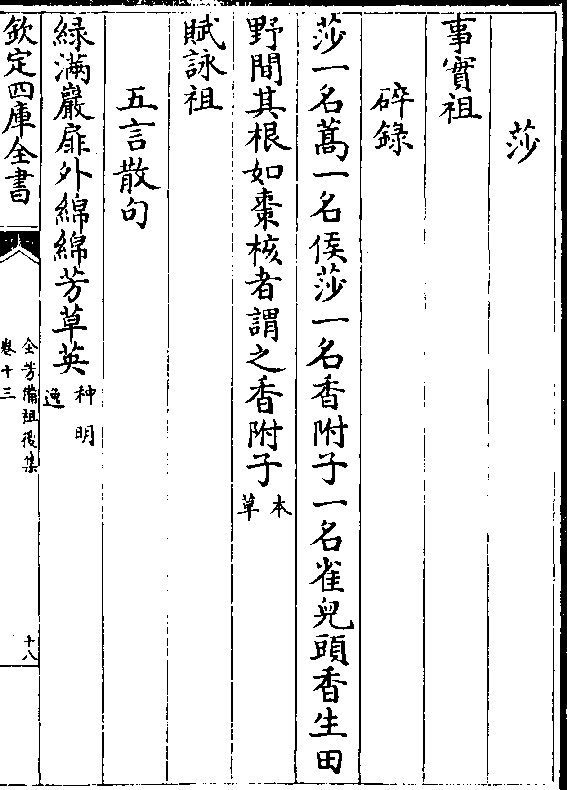 莎
事實祖
碎錄
莎一名蒿一名侯莎一名香附子一名雀兒頭香生田
野間其根如棗核者謂之香附子本草
賦詠祖
五言散句
緑滿巖扉外綿綿芳草英种明逸
欽定四庫全書
全芳備祖後集
卷十三
十八